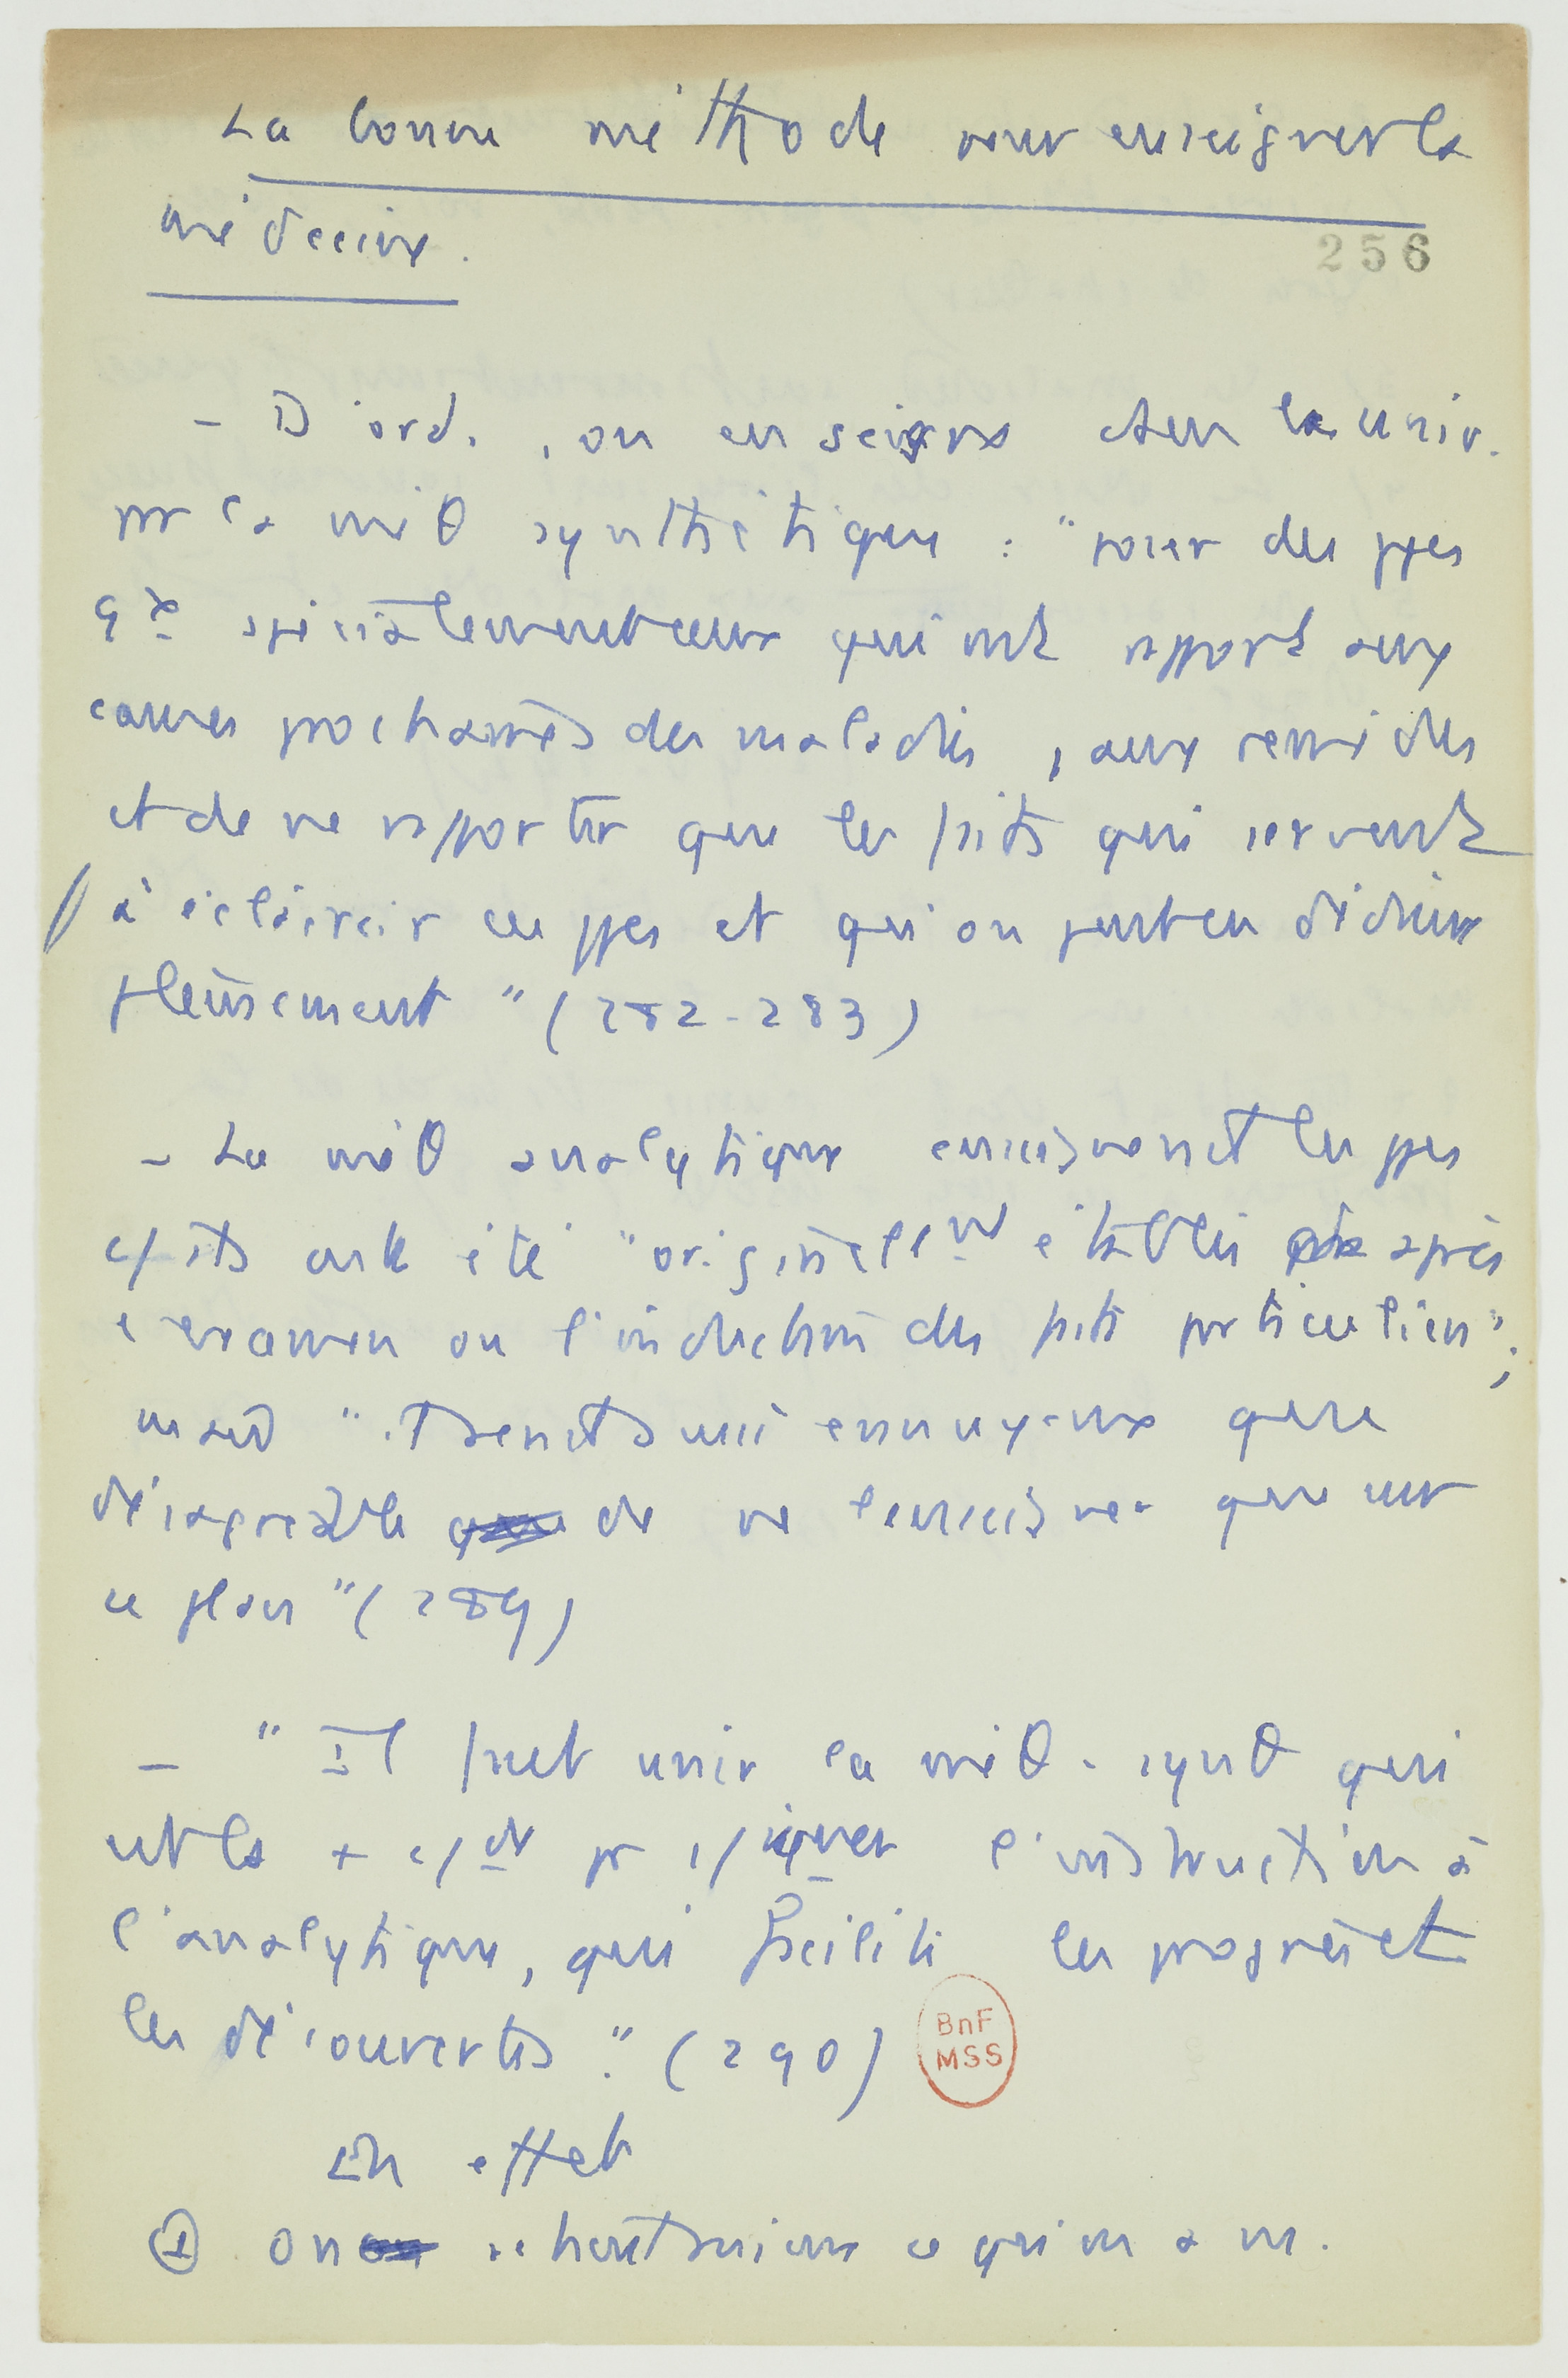 La bonne méthode pour enseigner la
médecine.
256
- D'ord., on enseigne dans les univ.
par la méθ synthétique : "poser des ppes
gx spécialement ceux qui ont rapport aux
causes prochaines des maladies, aux remèdes
et de ne rapporter que les faits qui servent
à éclaircir ces ppes et qu'on peut en déduire
pleinement" (282-283)
- La méθ analytique enseignerait les ppes
c/ ils ont été "originellemt établis après
l'examen ou l'induction des faits particuliers";
mais "il serait aussi ennuyeux que
désagréable de ne l'enseigner que sur
ce plan" (289)
- "Il faut unir la méθ. synθ qui
est la + c/de pr c/iquer l'instruction à
l'analytique, qui facilite les progrès et
les découvertes." (290)
BnF
MSS
En effet
① on retient mieux ce qu'on a vu.